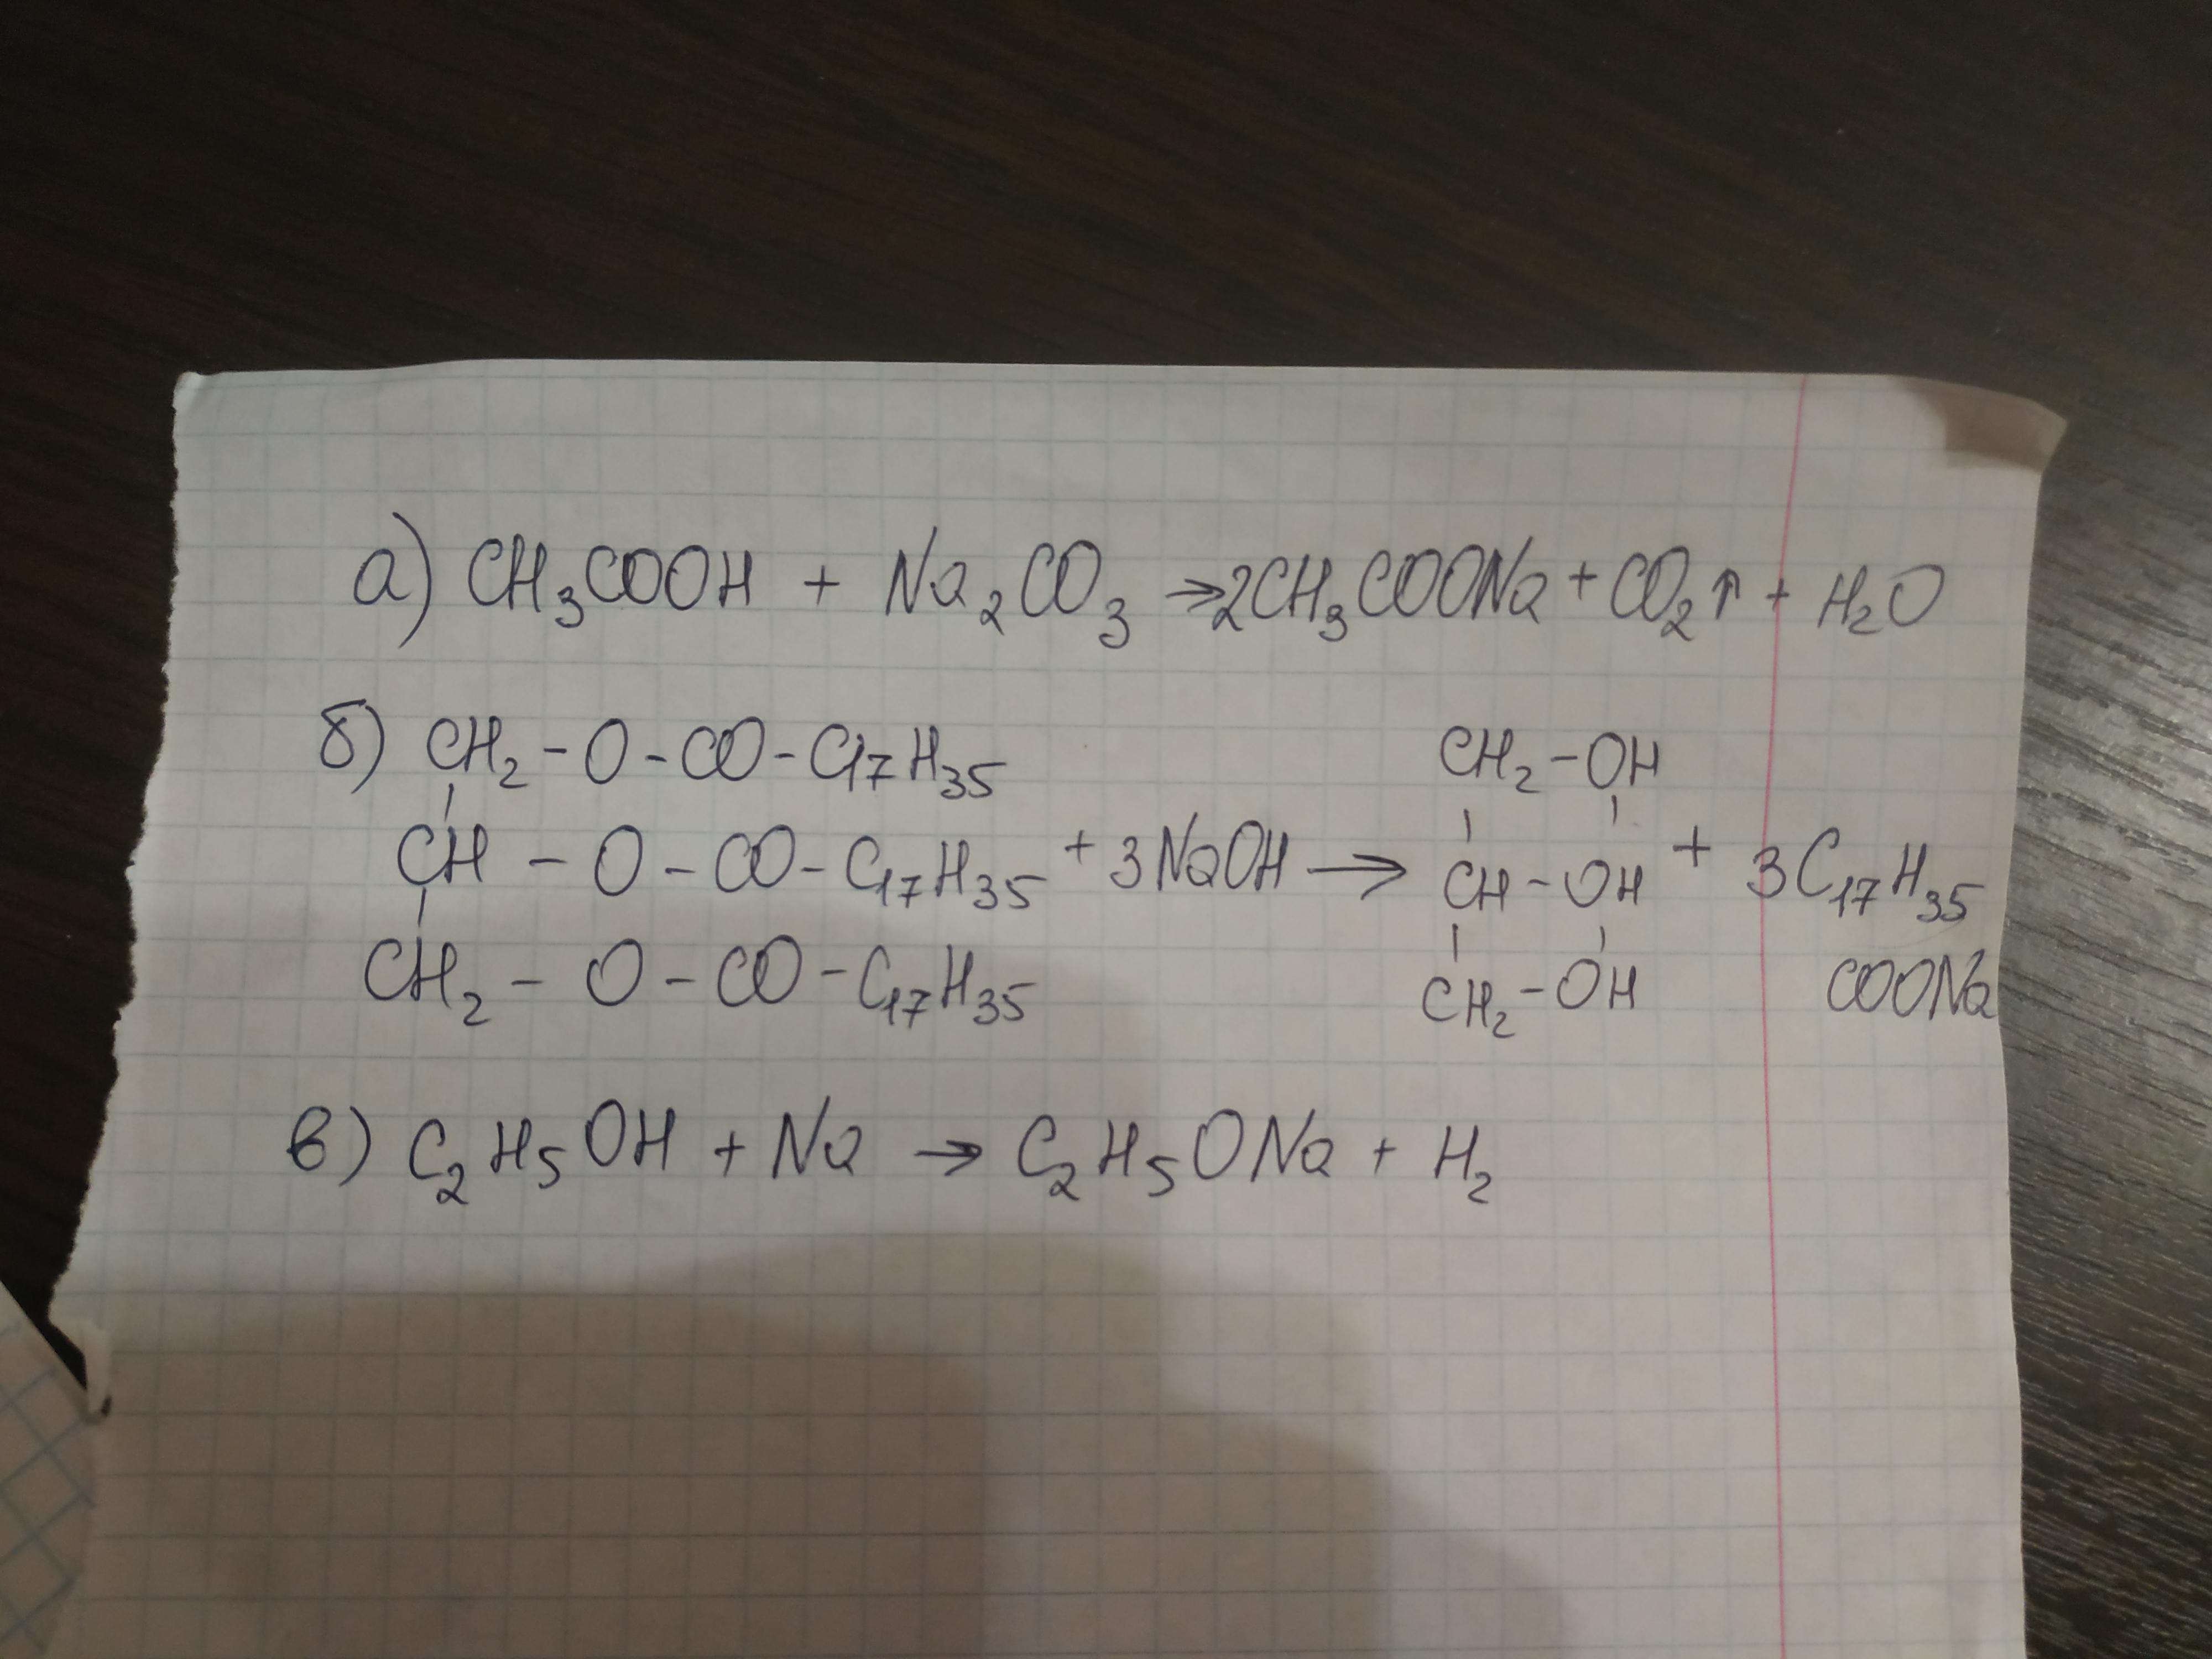 а) CH₃COOH + Na₂CO₃ → 2CH₃COONa + CO₂↑ + H₂O
б) CH₂ - O - CO - C₁₇H₃₅ CH₂ - OH
CH - O - CO - C₁₇H₃₅ + 3NaOH → CH - OH + 3C₁₇H₃₅
CH₂ - O - CO - C₁₇H₃₅ CH₂ - OH COONa
в) C₂H₅OH + Na → C₂H₅ONa + H₂